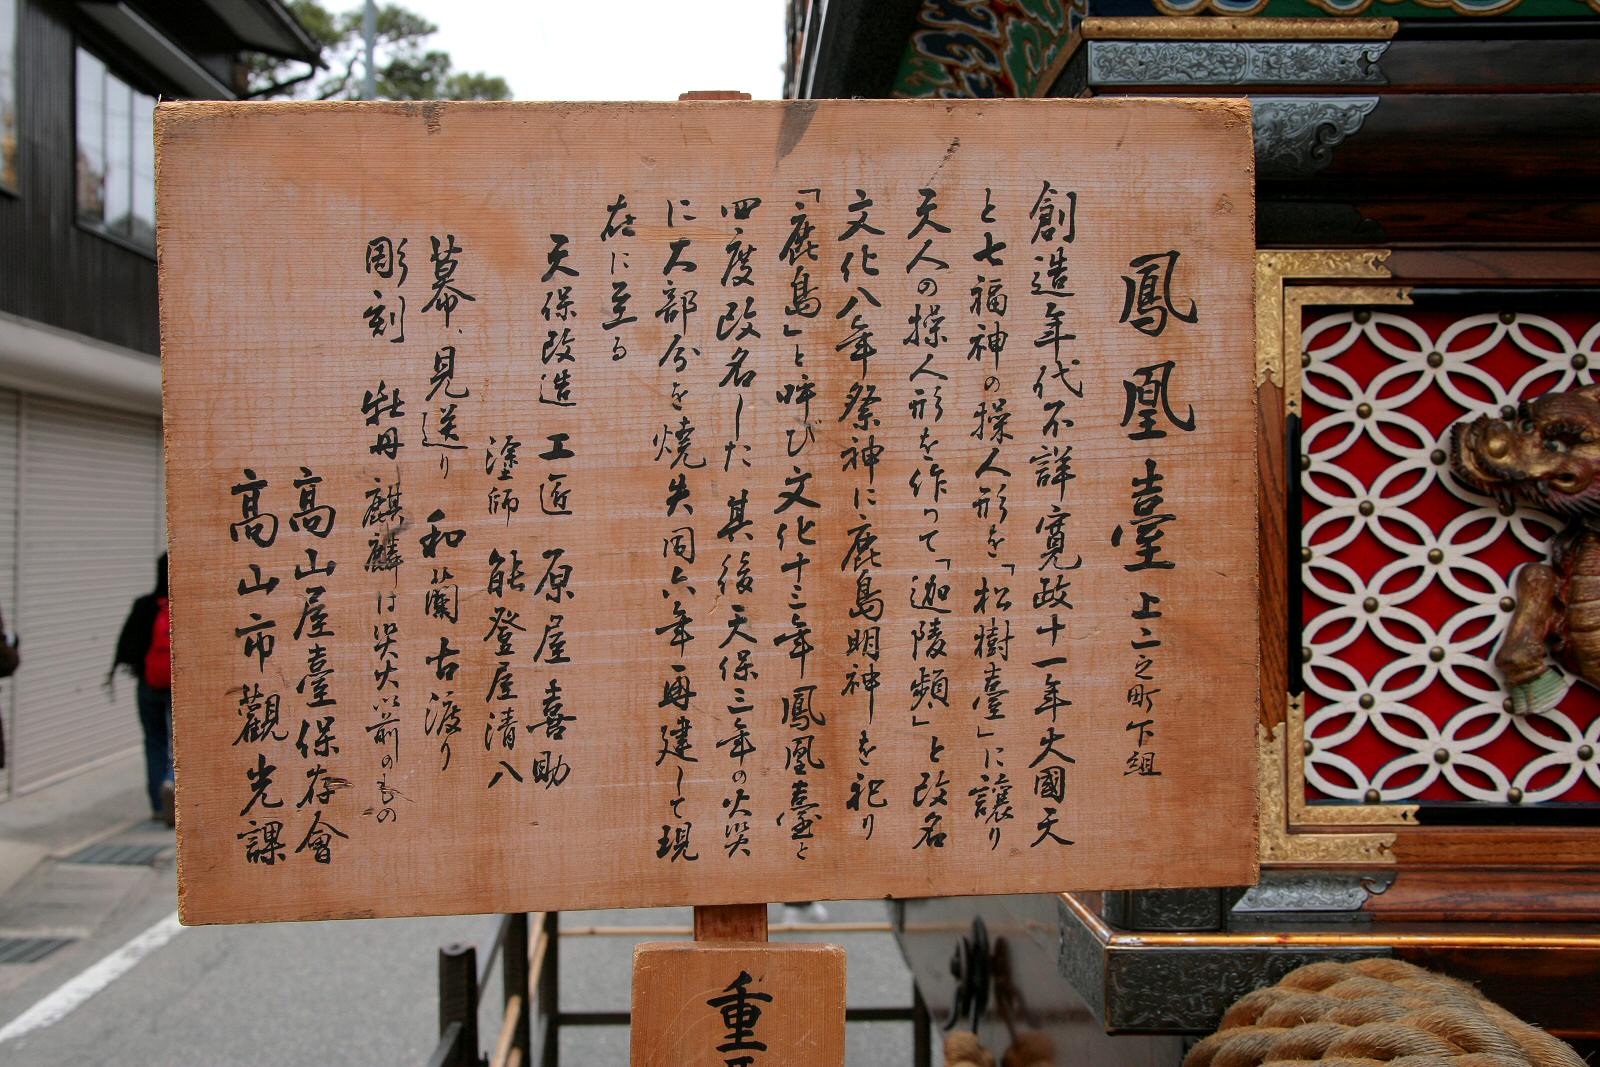 鳳凰臺 上二之町下組
創造年代不詳寛政十一年大國天
と七福神の操人形を「松樹臺」に譲り
天人の操人形を作って「迦陵頻」と改名
文化八年祭神に鹿島明神を祀り
「鹿島」と呼び文化十三年鳳凰臺と
四度改名した其後天保三年の火災
に大部分を焼失同六年再建して現
在に至る
天保改造 工匠 原屋喜助
塗師 能登屋清八
幕、見送り 和蘭古渡り
彫刻 牡丹 麒麟は災火以前のもの
高山屋臺保存會
高山市観光課
重